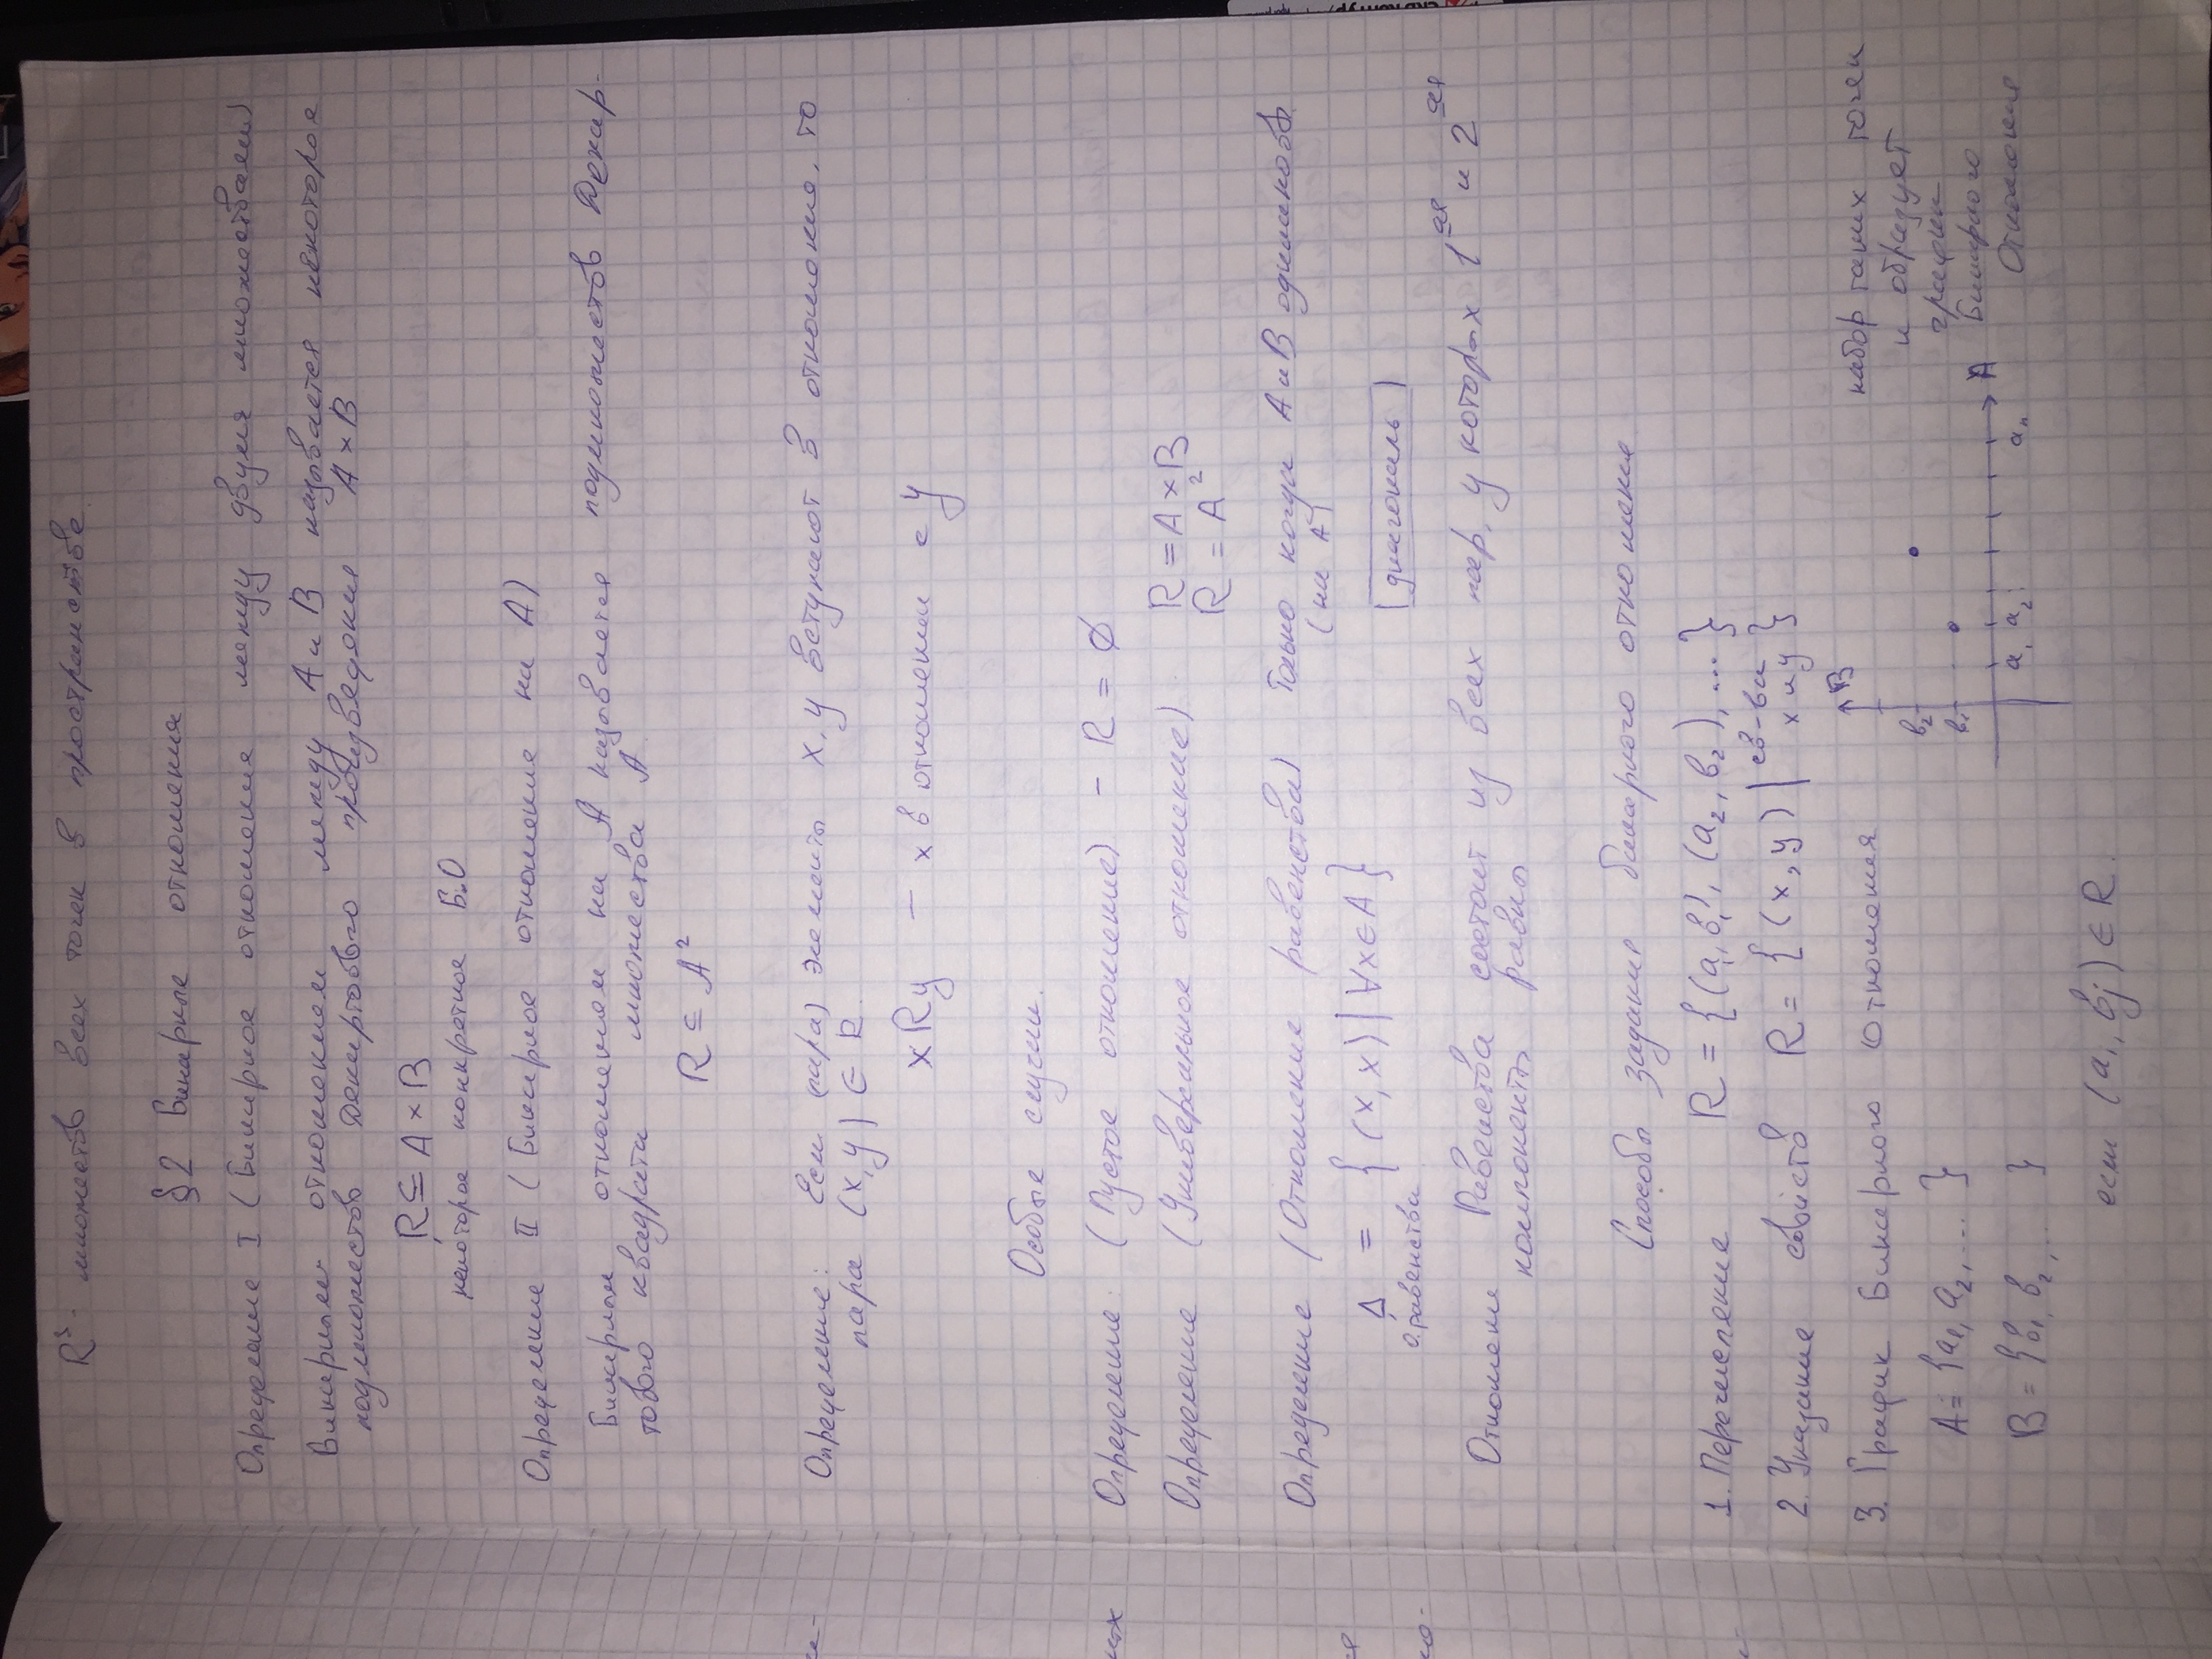 R³ - множеств всех точек в пространстве.
§2 Бинарные отношения
Определение I (Бинарное отношение между двумя множествами)
Бинарным отношением между A и B называется некоторое
подмножеств Декартового произведения A × B
R ⊆ A × B
некоторое конкретное Б.О
Определение II (Бинарное отношение на A)
Бинарным отношением на A называется подмножеств Декар-
тового квадрата множества A.
R ⊆ A²
Определение: Если (пара) элементы x, y вступают в отношение, то
пара (x, y) ∈ R.
x R y – x в отношении с y
Особые случаи.
Определение: (Пустое отношение) – R = ∅
Определение (Универсальное отношение) R = A × B
R = A²
Определение (Отношение равенства) Только когда A и B одинаковы.
(на A)
Δ = { (x, x) | ∀x ∈ A }
О. равенства
диагональ
Отношение Равенства состоит из всех пар, у которых 1ая и 2ая
компоненты равны
Способы задания бинарного отношения
1. Перечисление R = {(a₁, b₁), (a₂, b₂), ... }
2. Указание R = { (x, y) | св-ва
x и y }
3. График Бинарного Отношения
A = {a₁, a₂, ... }
B = {b₁, b₂, ... }
если (aᵢ, bⱼ) ∈ R.
B
b₂
b₁
a₁ a₂ aₙ
A
набор таких точек
и образует
график
Бинарного
Отношения